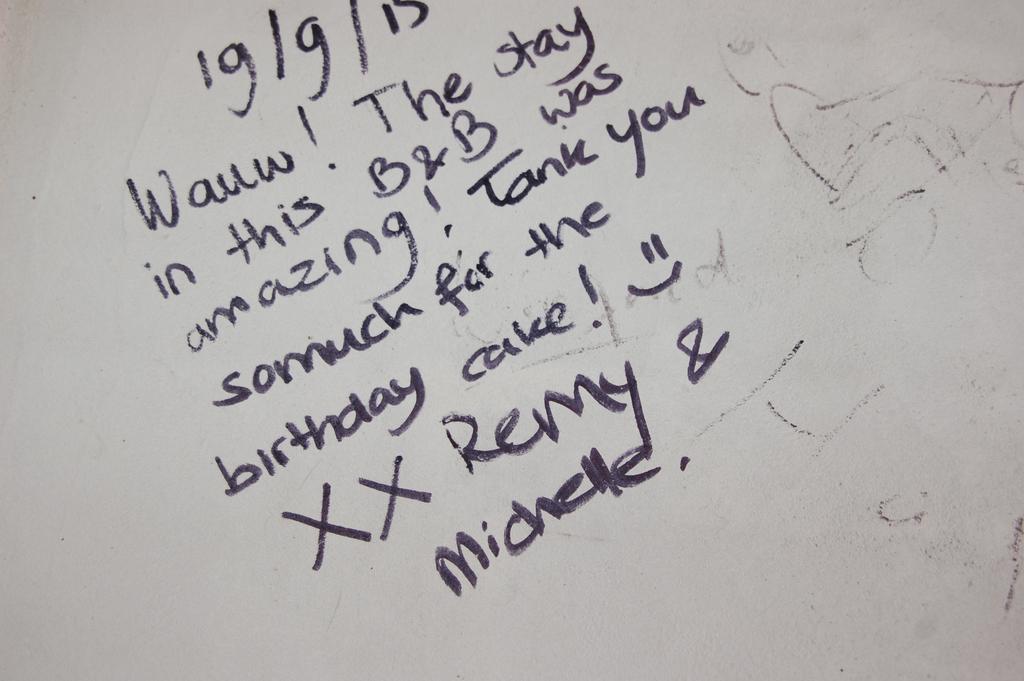 19/9/15
Wauw! The stay
in this B&B was
amazing! Tank you
somuch for the
birthday cake! :)
XX Remy &
Michelle.